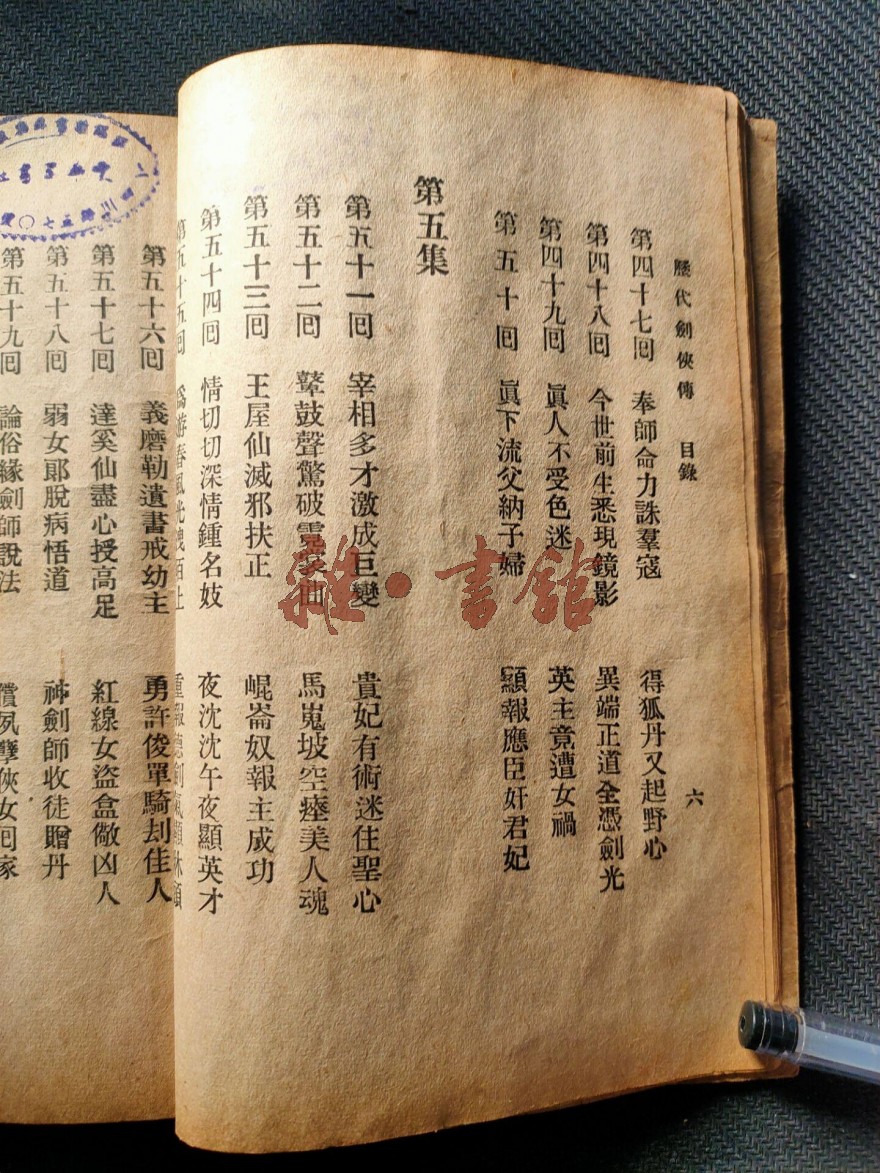 歷代劍俠傳 目錄 六
第四十七囘 奉師命力誅羣寇 得狐丹又起野心
第四十八囘 今世前生悉現鏡影 異端正道全憑劍光
第四十九囘 眞人不受色迷 英主竟遭女禍
第五十囘 眞下流父納子婦 顯報應臣奸君妃
第五集
第五十一囘 宰相多才激成巨變 貴妃有術迷住聖心
第五十二囘 鼙鼓聲驚破霓裳曲 馬嵬坡空瘞美人魂
第五十三囘 王屋仙滅邪扶正 崐崙奴報主成功
第五十四囘 情切切深情鍾名妓 夜沈沈午夜顯英才
第五十五囘
第五十六囘 義磨勒遺書戒幼主 勇許俊單騎刦佳人
第五十七囘 達奚仙盡心授高足 紅線女盜盒儆凶人
第五十八囘 弱女郞脫病悟道 神劍師收徒贈丹
第五十九囘 論俗緣劍師說法 償夙孽俠女囘家
雜·書館